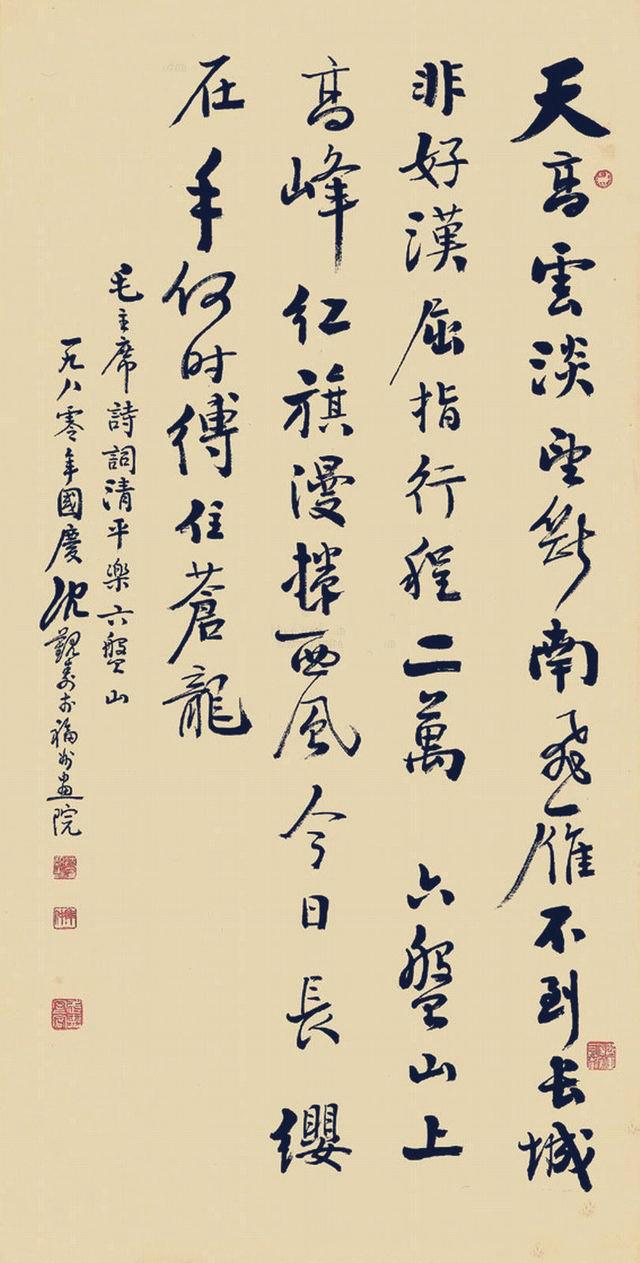 天高雲淡望斷南飛雁不到长城
非好漢屈指行程二萬六盤山上
高峰红旗漫捲西风今日長纓
在手何时縛住蒼龍
毛主席詩詞清平樂六盤山
一九八零年國慶沈覲壽于福州畫院